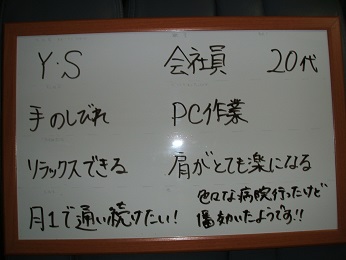 Y・S 会社員 20代
手のしびれ PC作業
リラックスできる 肩がとても楽になる
月1で通い続けたい!
色々な病院行ったけど
1番効いたようです!!